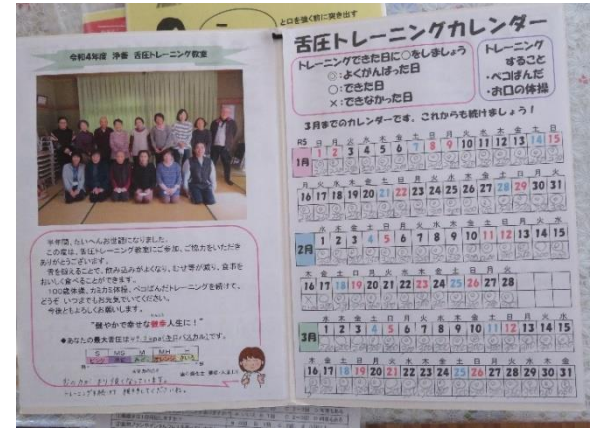 と口を強く前に突き出す
令和4年度 浄香 舌圧トレーニング教室
半年間、たいへんお世話になりました。
この度は、舌圧トレーニング教室にご参加、ご協力をいただき
ありがとうございます。
舌を鍛えることで、飲み込みがよくなり、むせ等が減り、食事を
おいしく食べることができます。
100歳体操、カミカミ体操、ペコぱんだトレーニングを続けて、
どうぞ いつまでもお元気でいてください。
今後ともよろしくお願いします。
“健やかで幸せな健幸人生に!”
◆あなたの最大舌圧は
S MS M MH
舌圧トレーニングカレンダー
トレーニングできた日に○をしましょう
◎:よくがんばった日
○:できた日
×:できなかった日
トレーニング
すること
・ペコぱんだ
・お口の体操
3月までのカレンダーです。これからも続けましょう!
R5 日 月 火 水 木 金 土 日 月 火 水 木 金 土 日
1月 1 2 3 4 5 6 7 8 9 10 11 12 13 14 15
月 火 水 木 金 土 日 月 火 水 木 金 土 日 月 火
16 17 18 19 20 21 22 23 24 25 26 27 28 29 30 31
水 木 金 土 日 月 火 水 木 金 土 日 月 火 水
2月 1 2 3 4 5 6 7 8 9 10 11 12 13 14 15
木 金 土 日 月 火 水 木 金 土 日 月 火
16 17 18 19 20 21 22 23 24 25 26 27 28
水 木 金 土 日 月 火 水 木 金 土 日 月 火 水
3月 1 2 3 4 5 6 7 8 9 10 11 12 13 14 15
木 金 土 日 月 火 水 木 金 土 日 月 火 水 木 金
16 17 18 19 20 21 22 23 24 25 26 27 28 29 30 31